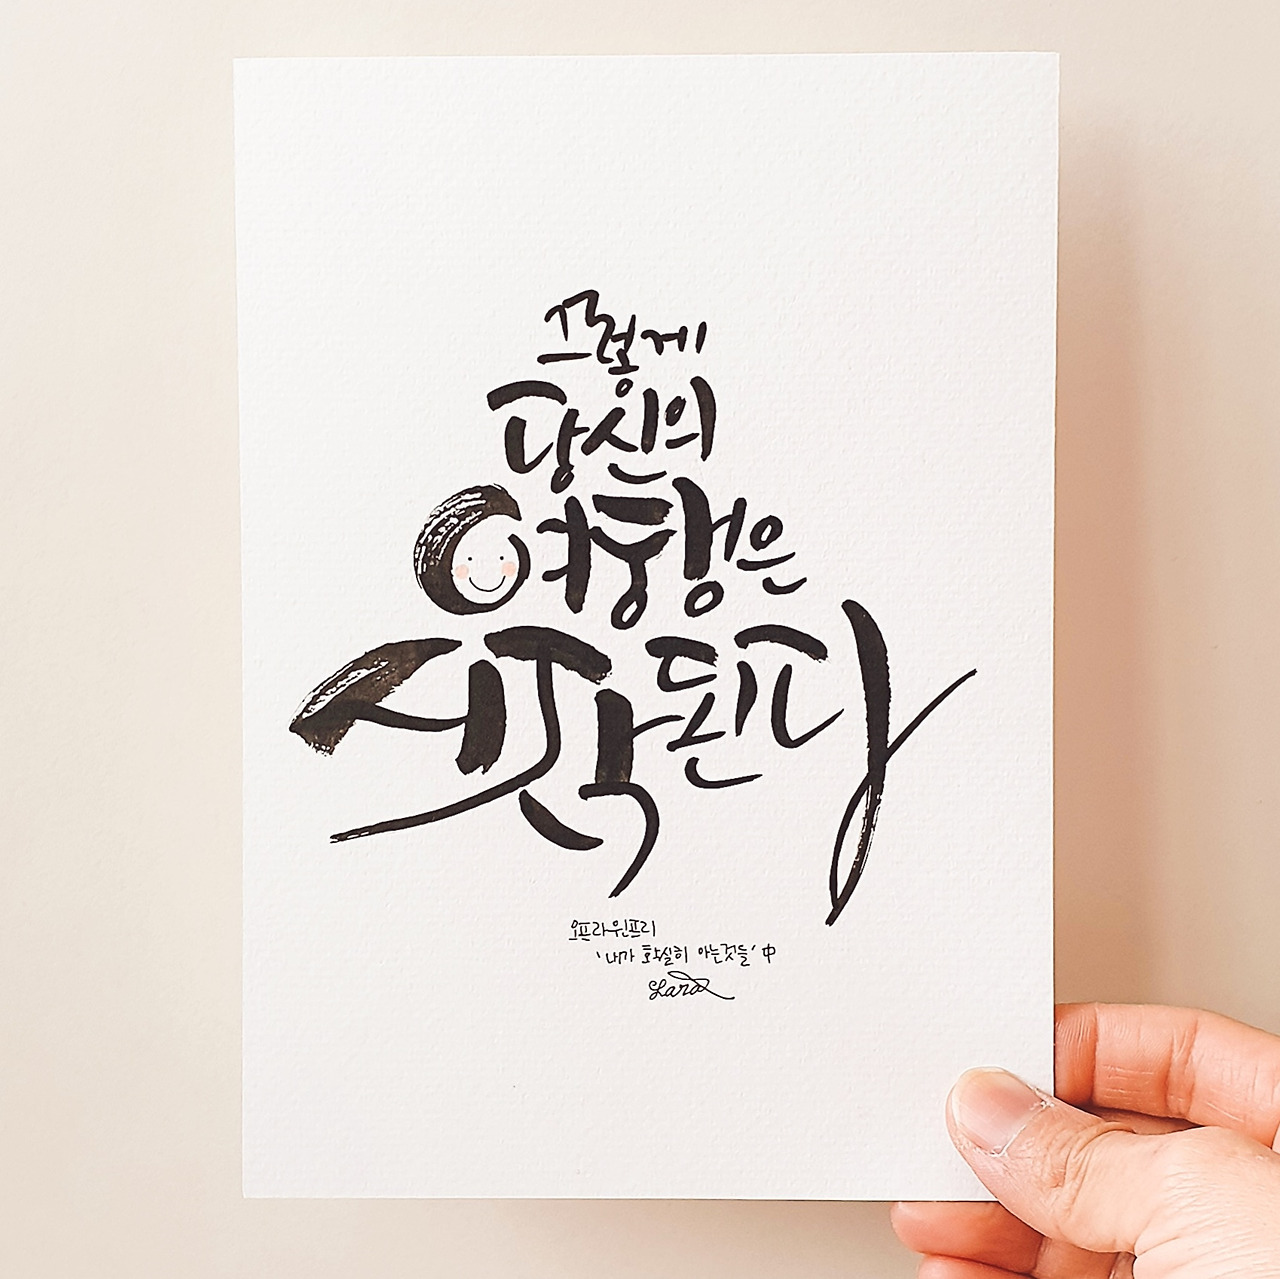 그렇게
당신의
여행은
시작된다
오프라윈프리
'내가 확실히 아는것들' 中
Lara